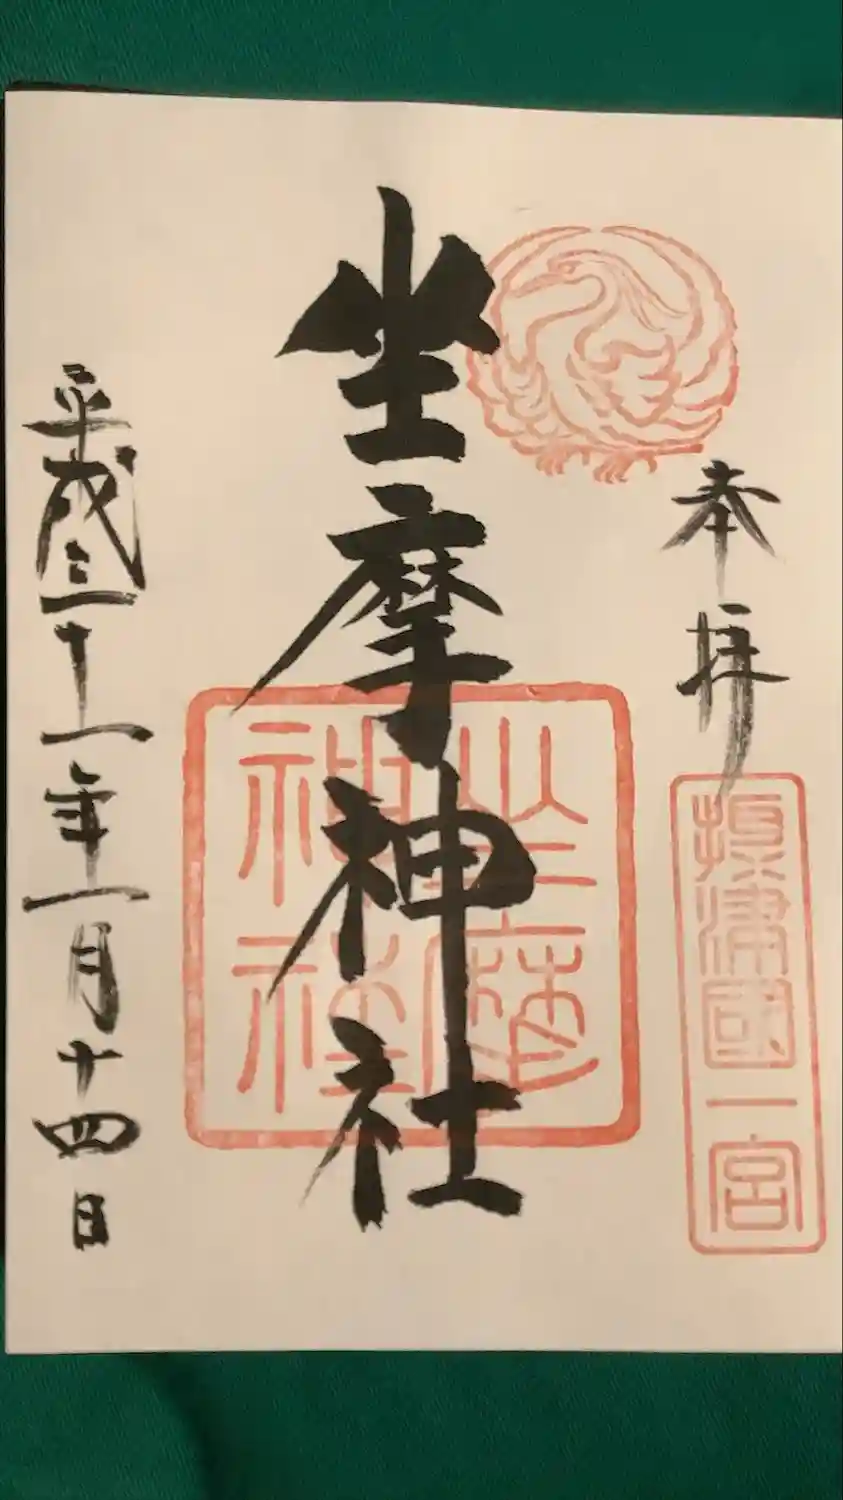 奉拝
摂津國一宮
坐摩神社
坐摩
神社
平成三十一年一月十四日